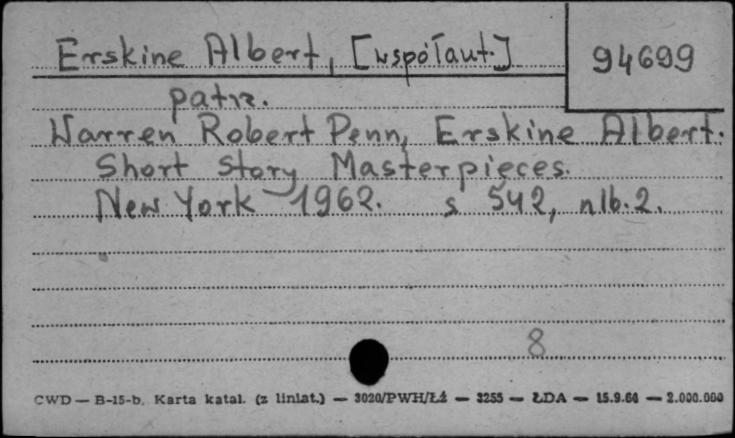 Erskine Albert, [współaut.]
94699
patrz.
Warren Robert Penn, Erskine Albert.
Short Story Masterpieces.
New York 1962. s 542, nlb. 2.
8
CWD — B-15-b. Karta katal. (z liniat.) — 3020/PWH/Łź — 3255 — ŁDA — 15.9.60 — 2.000.000